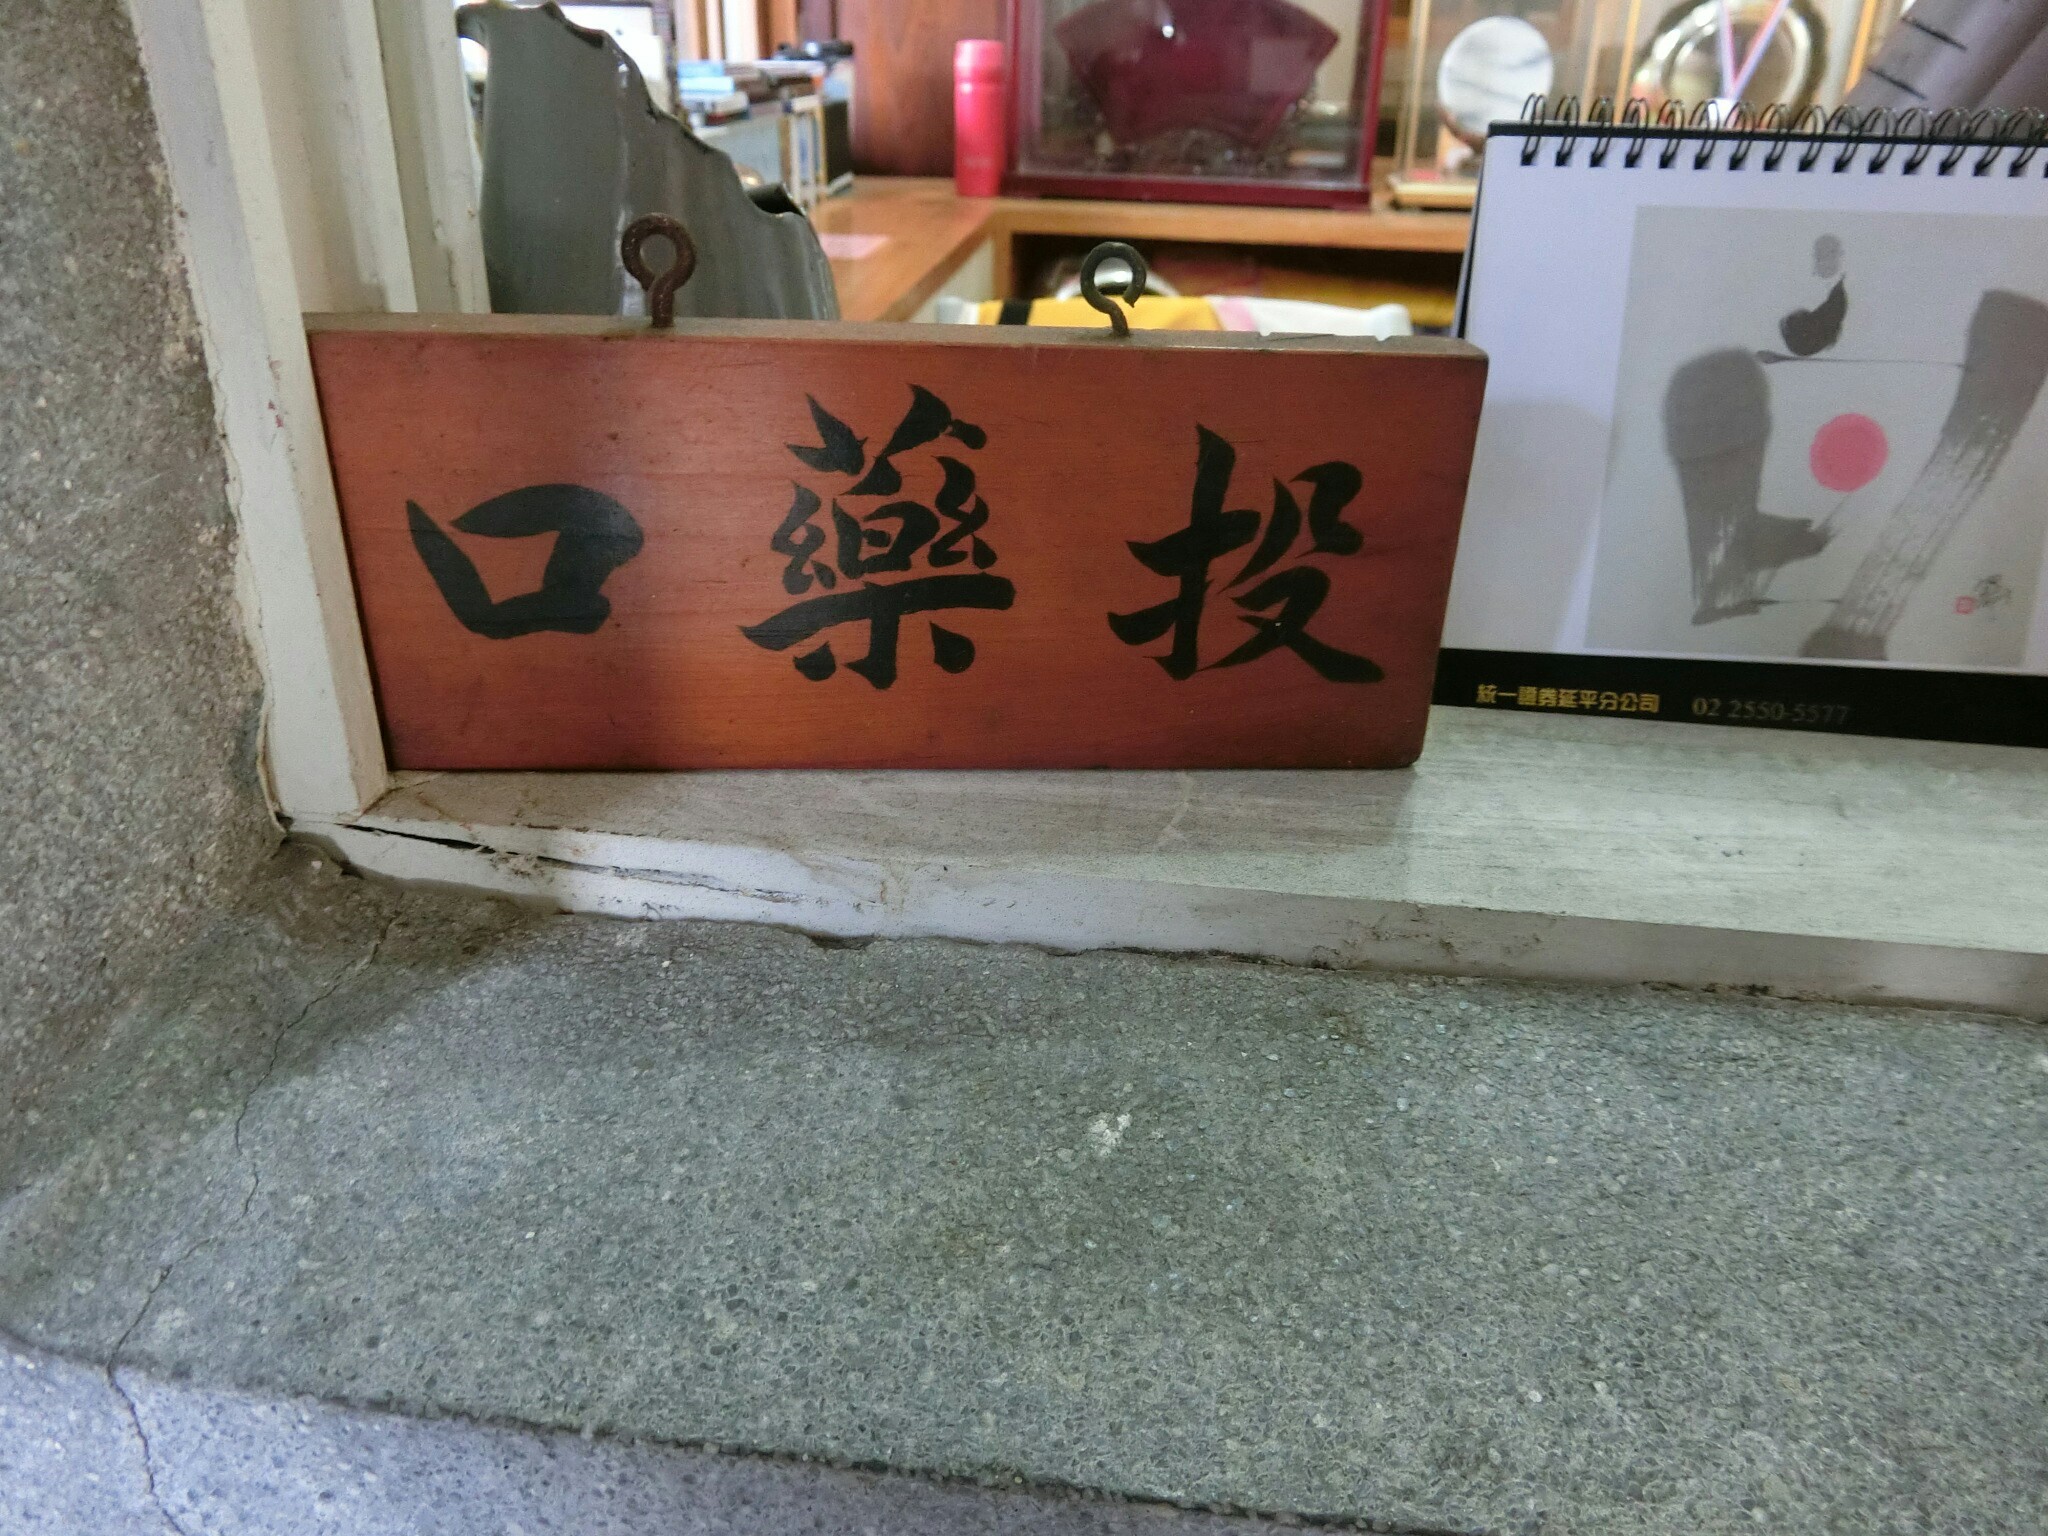 投藥口
統一證券延平分公司 02 2550-5577